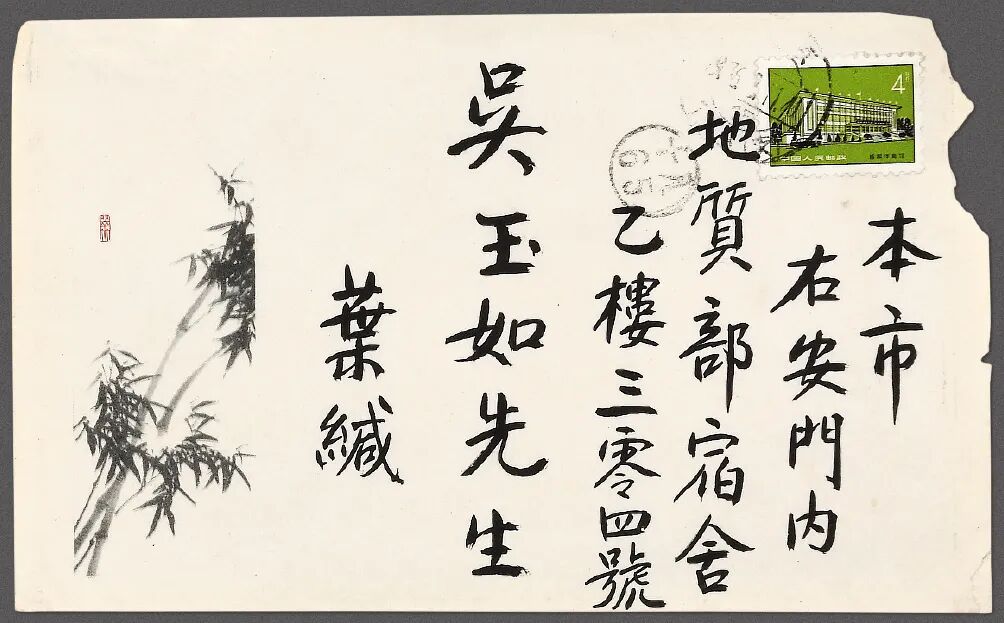 本市
右安門内
地質部宿舍
乙樓三零四號
吳玉如先生
葉緘
4
中国人民邮政